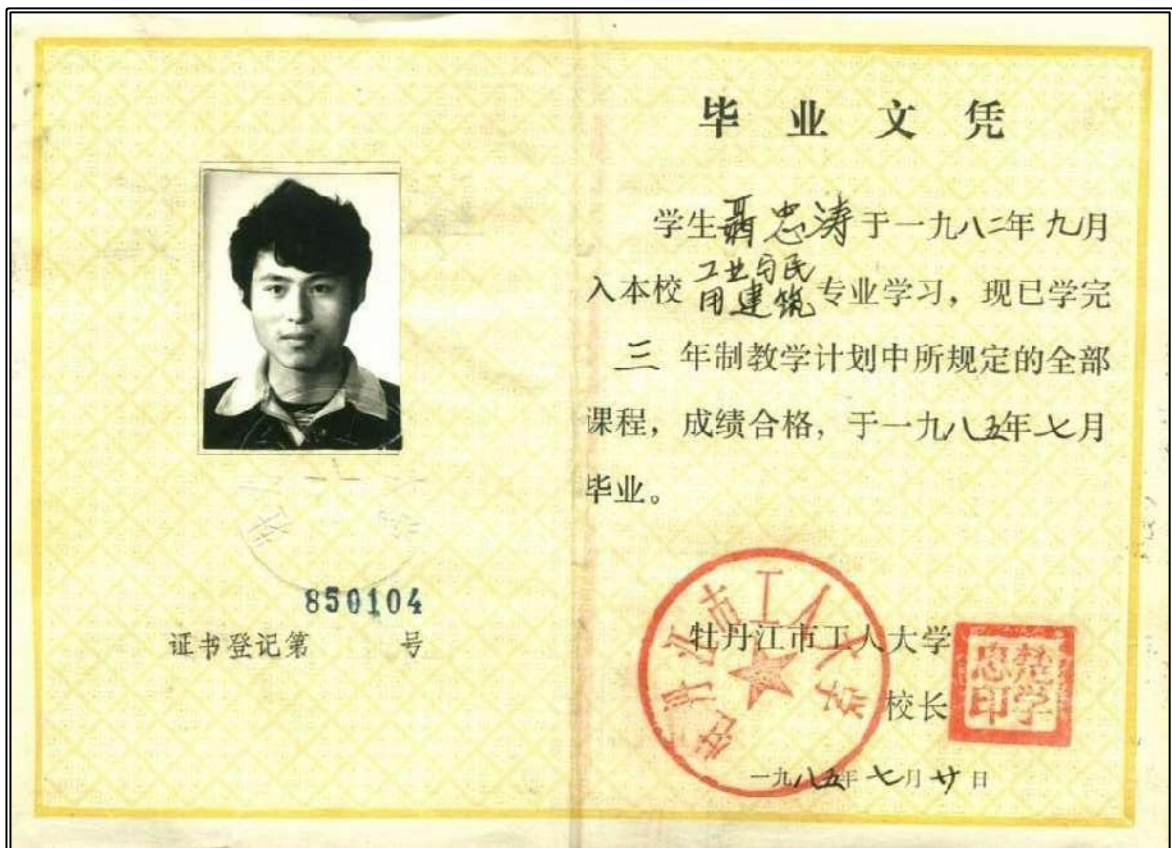 毕业文凭
学生聶忠涛于一九八二年九月
入本校工业与民
用建筑专业学习，现已学完
三年制教学计划中所规定的全部
课程，成绩合格，于一九八五年七月
毕业。
850104
证书登记第 号
牡丹江市工人大学
牡丹江市工人大学
校长
学
忠印
一九八五年七月廿日